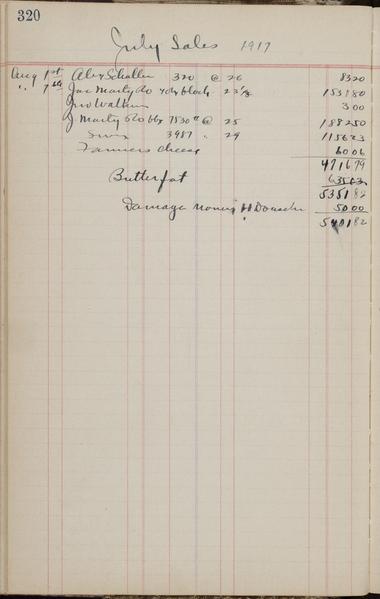 320
July Sales 1917
Aug 1st Alex Schaller 320 @ 26 8320
" 7th Jas Marty Co block 23⅛ 153180
Jno 300
J Marty 620 bx 7530# @ 25 188250
Swiss 3987 " 29 115623
Farmers cheese 6006
471679
Butterfat 63503
535182
Damage money H 5000
540182